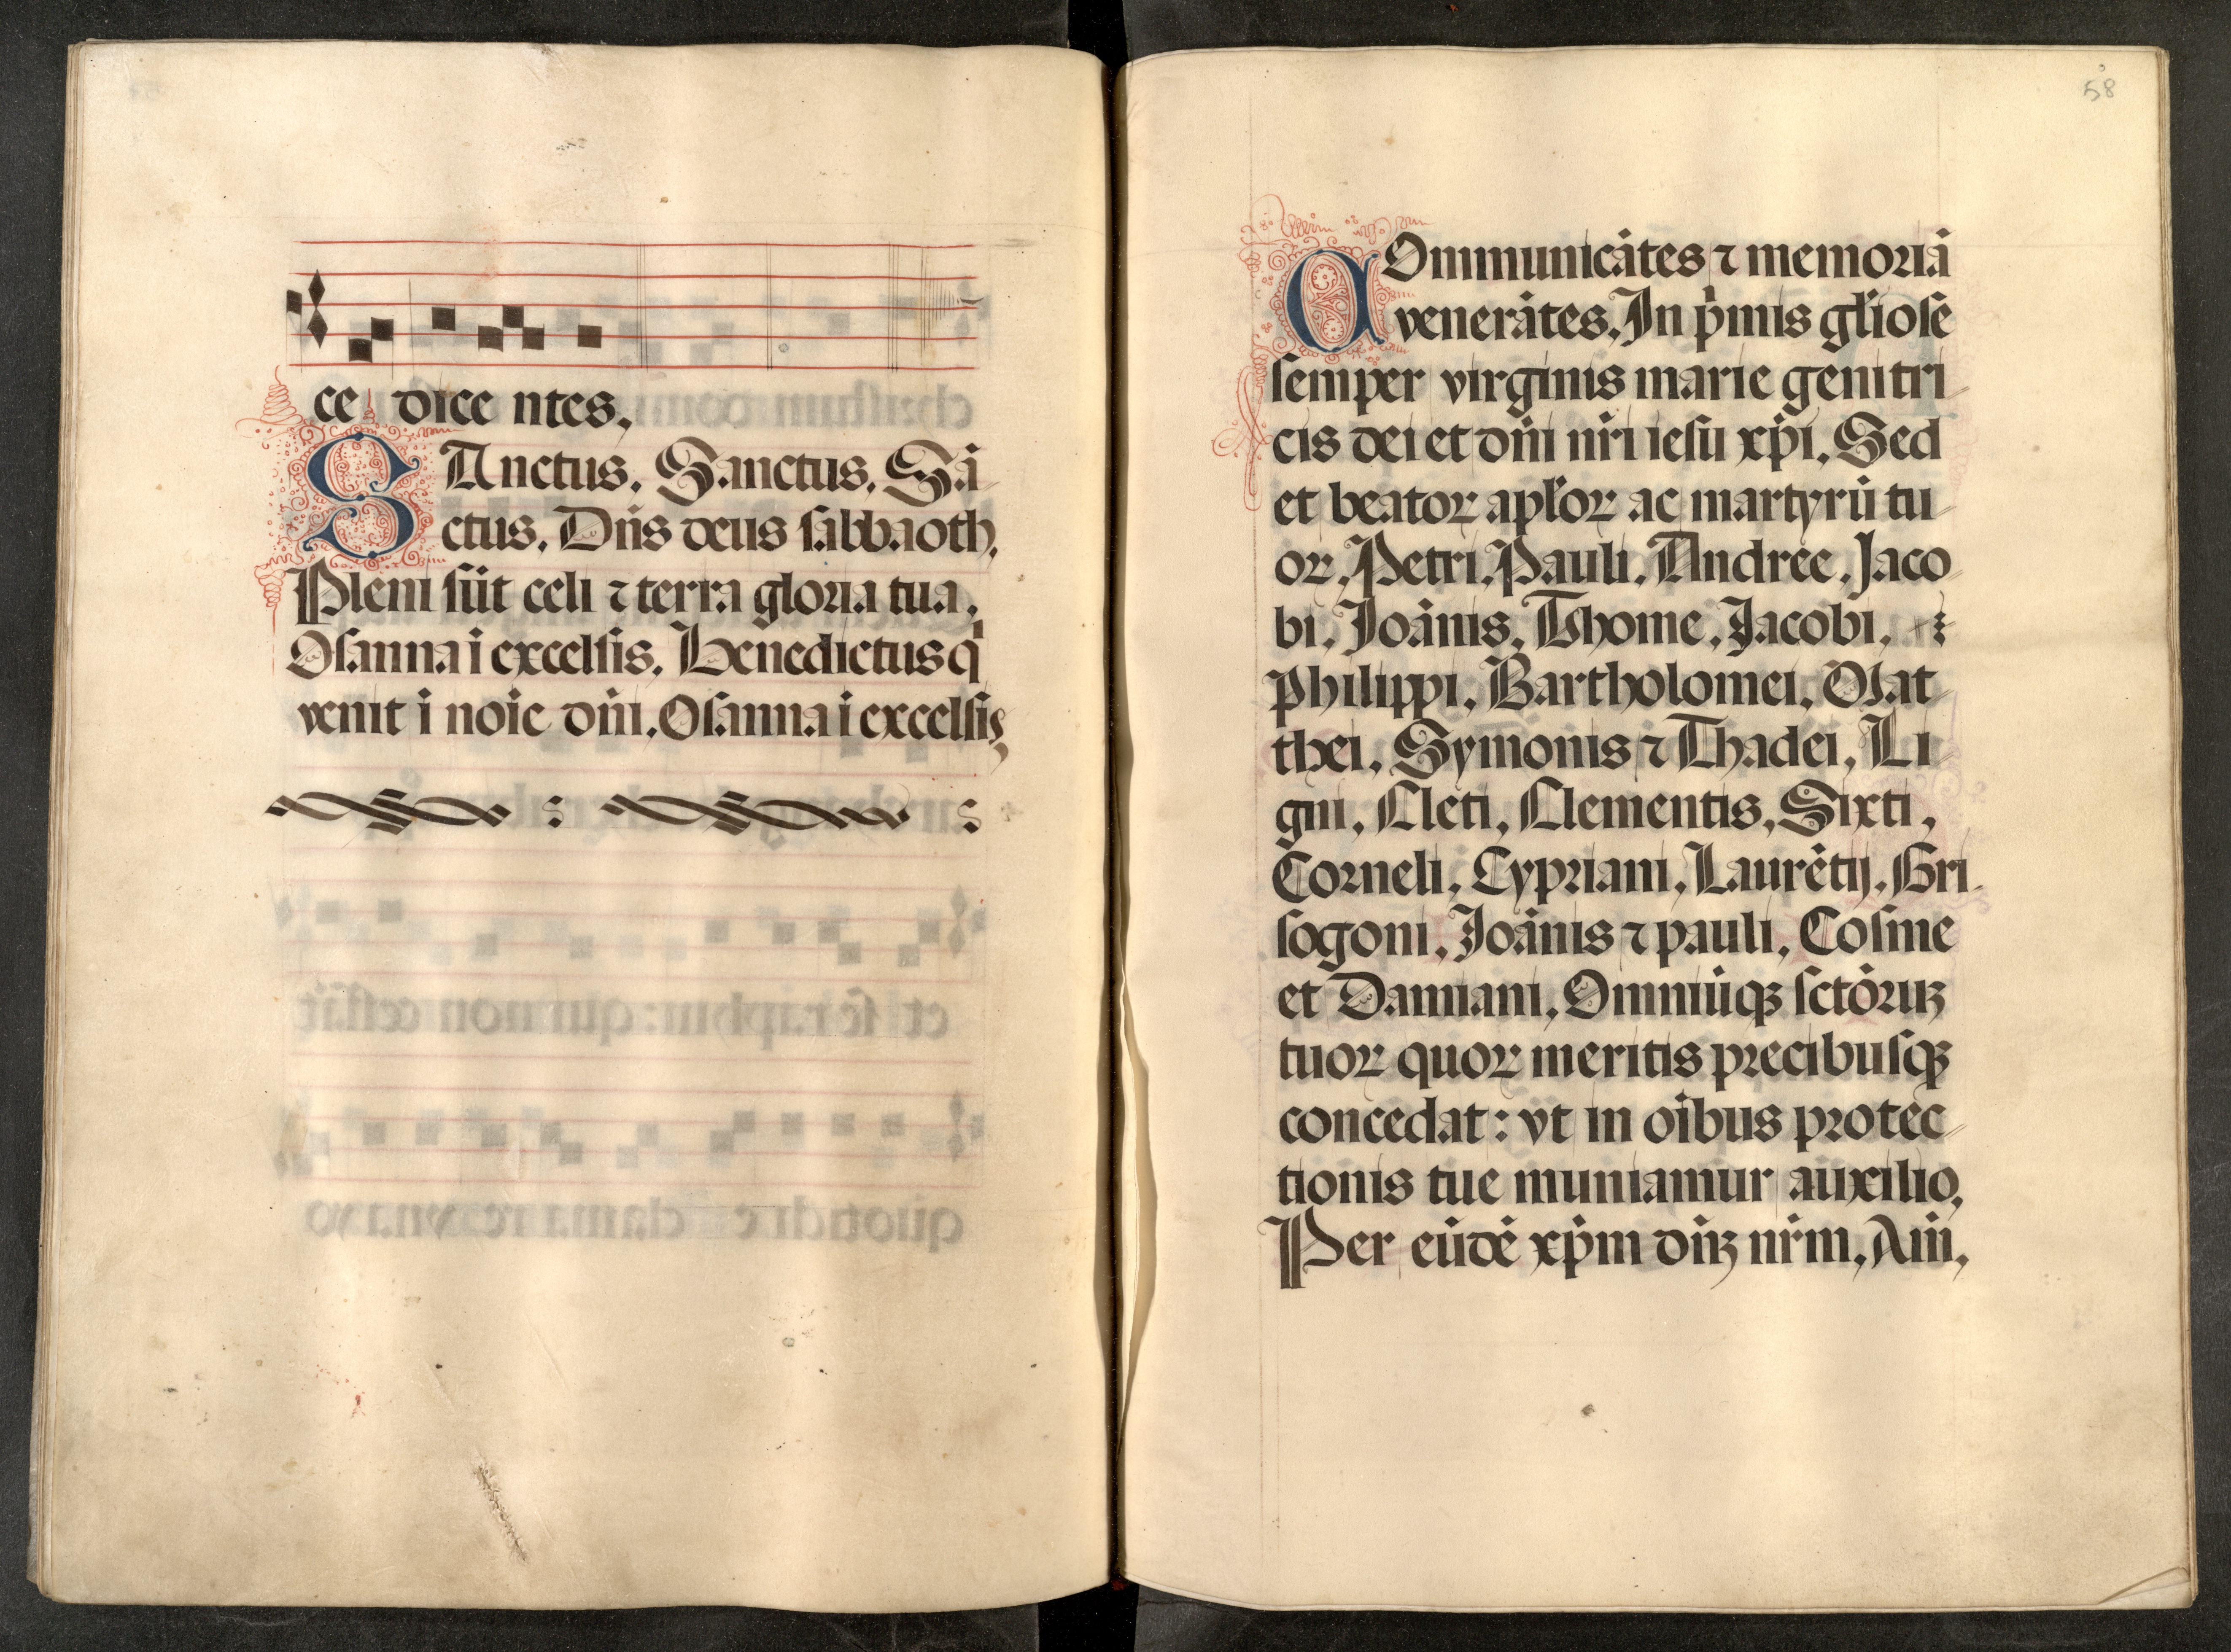 ce dice ntes.
SAnctus. Sanctus. Sā
ctus. Dn̄s deus sabbaoth.
Pleni sūt celi ⁊ terra gloria tua.
Osanna ī excelsis. Benedictus qͥ
venit ī noīe dn̄i. Osanna ī excelsis
58
COmmunicātes ⁊ memoriā
venerātes. In pͥmis gl̄iose
semper virginis marie genitri
cis dei et dn̄i nr̄i iesu xp̄i. Sed
et beatoꝝ apl̄oꝝ ac martyrū tu
oꝝ. Petri. Pauli. Andree. Jaco
bi. Joānis. Thome. Jacobi.
Philippi. Bartholomei. Mat
thei. Symonis ⁊ Thadei. Li
gni. Cleti. Clementis. Sixti.
Corneli. Cypriani. Laurētij. Gri
sogoni. Joānis ⁊ pauli. Cosme
et Damiani. Omniūqꝫ sctōruꝫ
tuoꝝ quoꝝ meritis precibusqꝫ
concedat: vt in oībus protec
tionis tue muniamur auxilio.
Per eūdē xp̄m dn̄ꝫ nr̄m. Am̄.